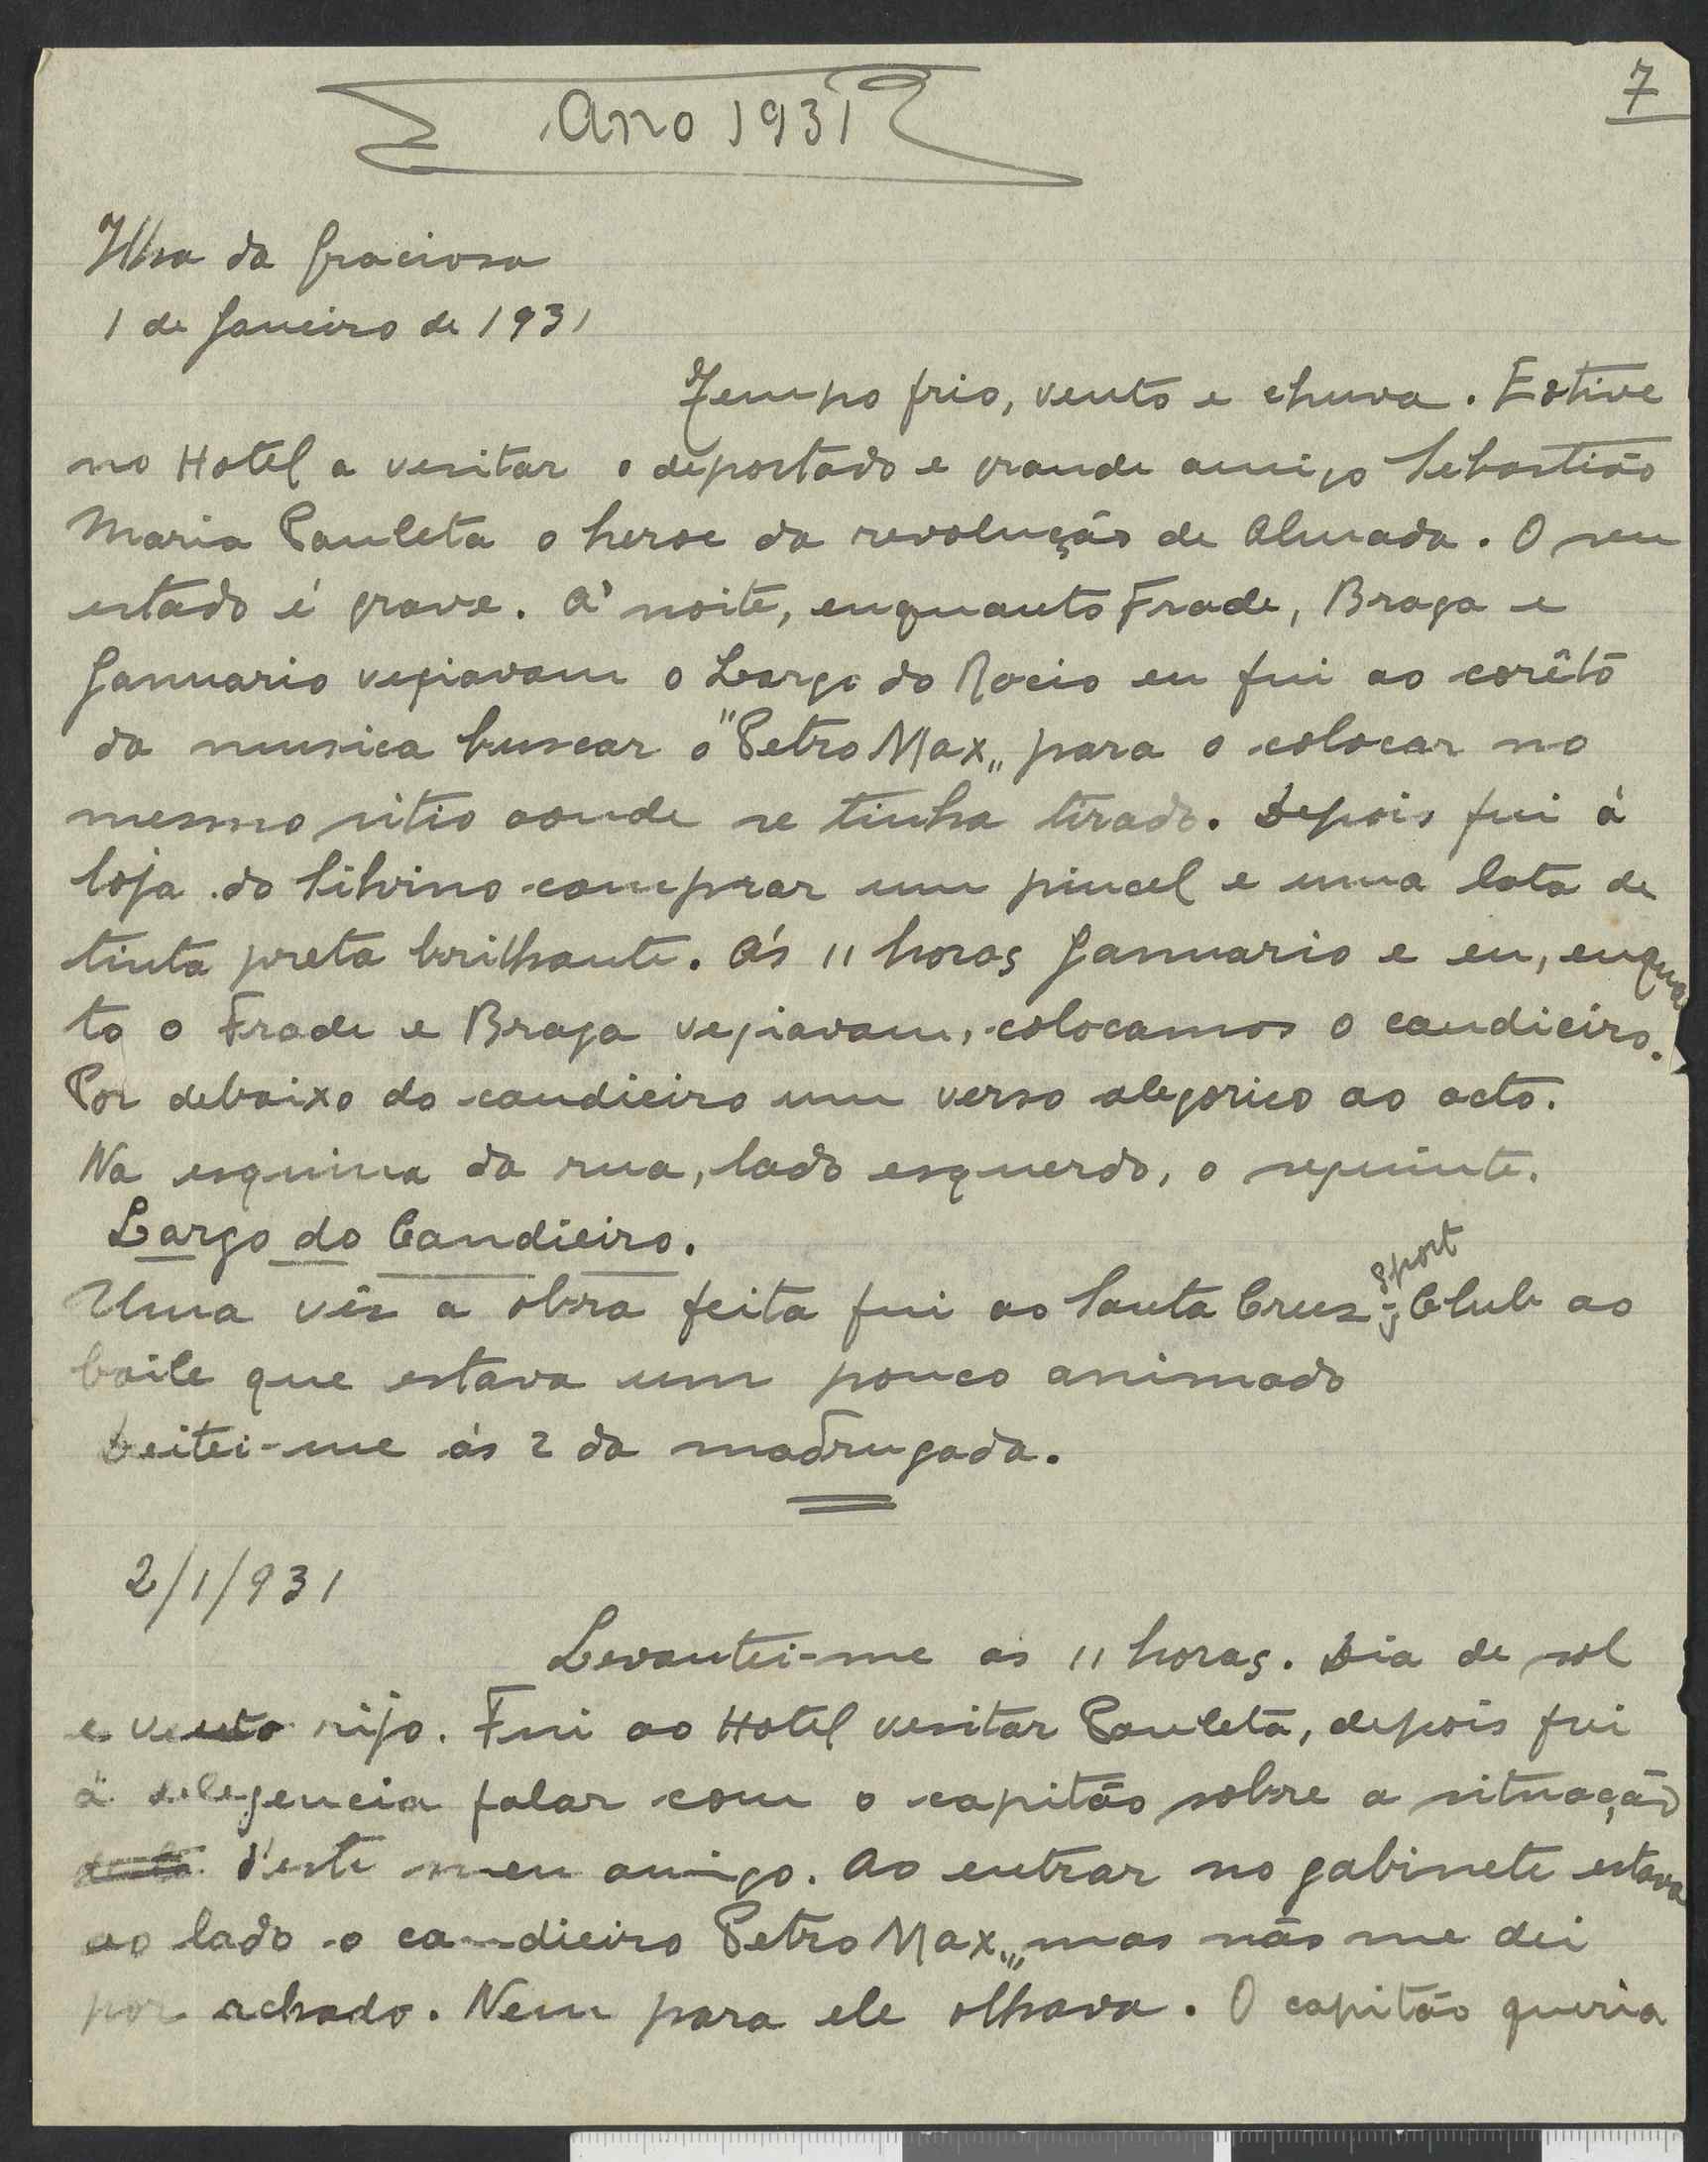 7
Ano 1931
Ilha da Graciosa
1 de Janeiro de 1931
Tempo frio, vento e chuva. Estive
no Hotel a vesitar o deportado e grande amigo Sebastião
Maria Pauleta o heroe da revolução de Almada. O seu
estado é grave. Á noite, enquanto Frade, Braga e
Januario vegiavam o Largo do Rocio eu fui ao corêto
da musica buscar o "Petro Max„ para o colocar no
mesmo sitio aonde se tinha tirado. Depois fui á
loja do Silvino comprar um pincel e uma lata de
tinta preta brilhante. Ás 11 horas Januario e eu, enquan
to o Frade e Braga vegiavam, colocamos o candieiro.
Por debaixo do candieiro um verso alegorico ao acto.
Na esquina da rua, lado esquerdo, o seguinte.
Largo do Candieiro.
Uma vês a obra feita fui ao Santa Cruz Sport Club ao
baile que estava um pouco animado
Deitei-me ás 2 da madrugada.
2/1/931
Levantei-me ás 11 horas. Dia de sol
e vento rijo. Fui ao Hotel vesitar Pauleta, depois fui
á delegencia falar com o capitão sobre a situação
d'este meu amigo. Ao entrar no gabinete estava
ao lado o candieiro Petro Max„ mas não me dei
por achado. Nem para ele olhava. O capitão queria